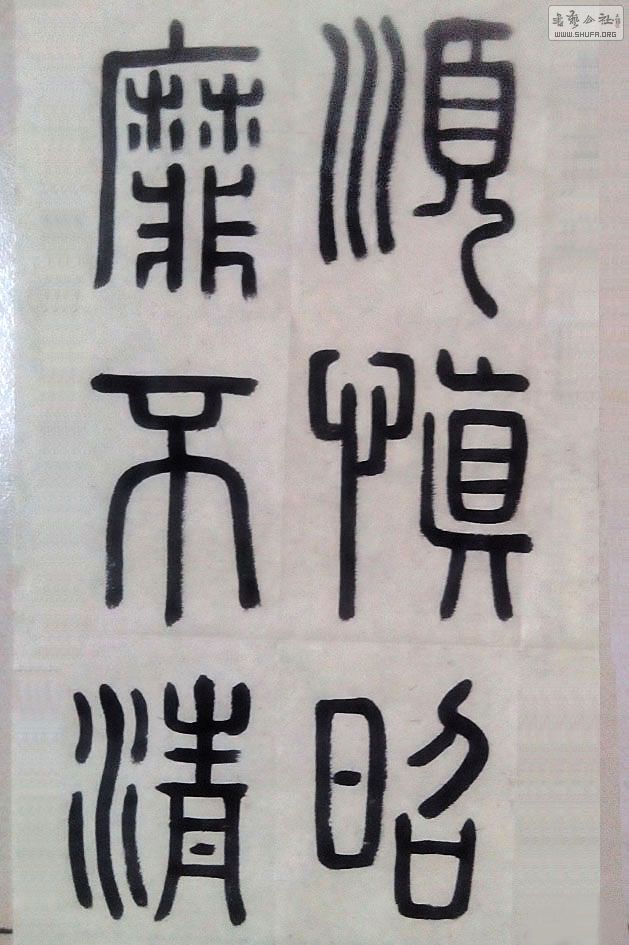 順慎昭
靡不清
書藝公社
WWW.SHUFA.ORG